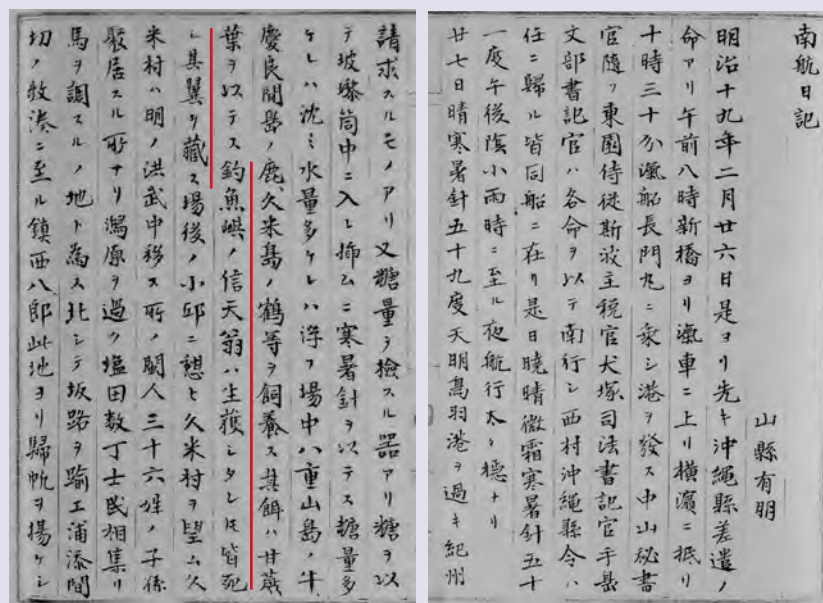 南航日記
山縣有朋
明治十九年二月廿六日是ヨリ先キ沖繩縣差遣ノ
命アリ午前八時新橋ヨリ滊車ニ上リ横濱ニ抵リ
十時三十分滊船長門丸ニ乗シ港ヲ發ス中山秘書
官随フ東園侍従斯波主税官犬塚司法書記官手島
文部書記官ハ各命ヲ以テ南行シ西村沖縄縣令ハ
任ニ歸ル皆同船ニ在リ是日曉晴微霜寒暑針五十
一度午後陰小雨時ニ至ル夜航行太タ穏ナリ
廿七日晴寒暑針五十九度天明鳥羽港ヲ過キ紀州
請求スルモノアリ又糖量ヲ檢スル器アリ糖ヲ以
テ玻瓈筒中ニ入レ抑ムニ寒暑針ヲ以テス糖量多
ケレハ沈ミ水量多ケレハ浮フ場中八重山島ノ牛
慶良間島ノ鹿、久米島ノ鶴等ヲ飼養ス其餌ハ甘蔗
葉ヲ以テス釣魚嶼ノ信天翁ハ生獲シタレ𪜈皆死
シ其翼ヲ藏ス場後ノ小邱ニ憩ヒ久米村ヲ望ム久
米村ハ明ノ洪武中移ス所ノ閩人三十六姓ノ子孫
聚居スル所ナリ潟原ヲ過ク塩田数丁士民相集リ
馬ヲ調スルノ地ト為ス北シテ坂路ヲ踰エ浦添間
切ノ牧湊ニ至ル鎮西八郎此地ヨリ歸帆ヲ揚ケシ